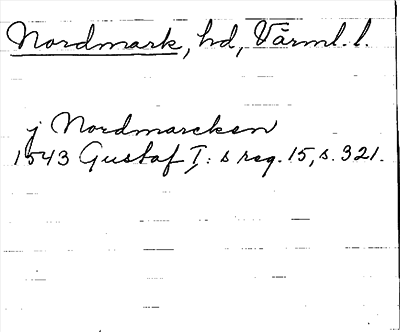 Nordmark, hd, Värml. l.
j Nordmarcken
1543 Gustaf I: s reg. 15, s. 321.